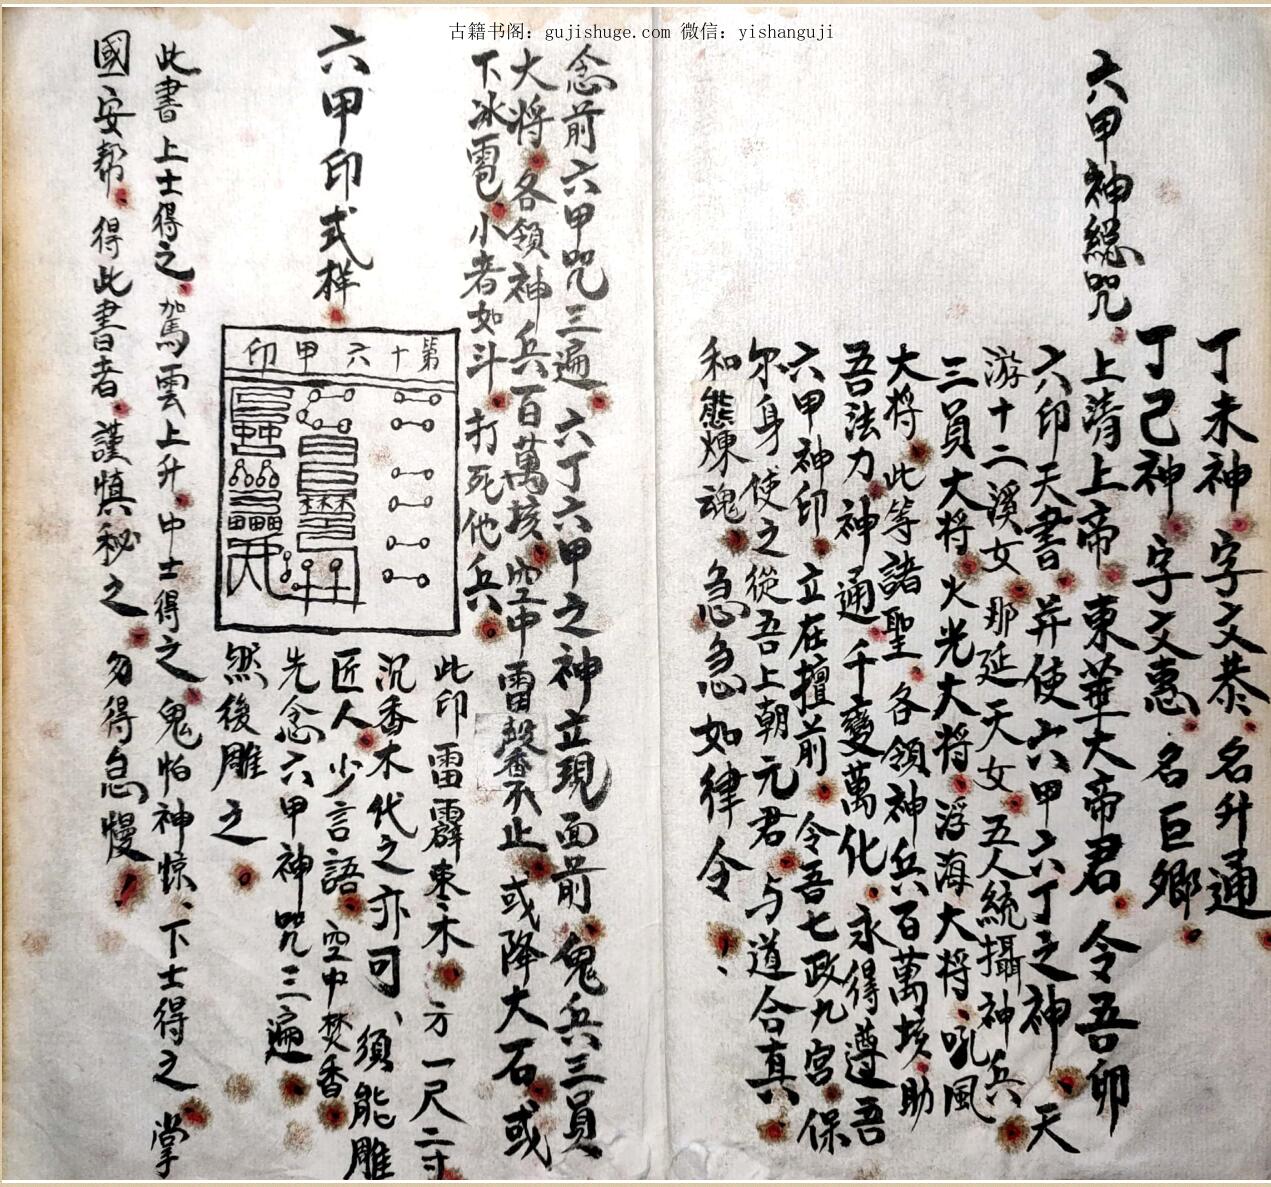 古籍书阁：gujishuge.com 微信：yishanguji
丁未神 字文恭 名升通
丁己神 字文惠 名巨鄉
六甲神總咒
上清上帝 東華大帝君 令吾卯
六印天書 并使六甲六丁之神 天
游十二溪女 那延天女 五人統攝神兵
三員大将 火光大将 浮海大将 吼風
大将 此等諸聖 各領神兵百萬垓 助
吾法力 神通千變萬化 永得遵吾
六甲神印 立在擅前 令吾七政九宮 保
尔身使之從吾上朝元君 与道合真
和熊煉魂 急急如律令
念前六甲咒三遍 六丁六甲之神立現面前 鬼兵三員
大将 各領神兵百萬垓 空中雷聲不止 或降大石 或
下冰雹 小者如斗 打死他兵
六甲印式样
第十六甲印
此印雷霹枣木 方一尺二寸
沉香木代之亦可、須能雕
匠人 少言語 空中焚香
先念六甲神咒三遍
然後雕之。
此書上士得之 駕雲上升 中士得之 鬼怕神惊、下士得之 掌
國安幇 得此書者 謹慎秘之 勿得怠慢！